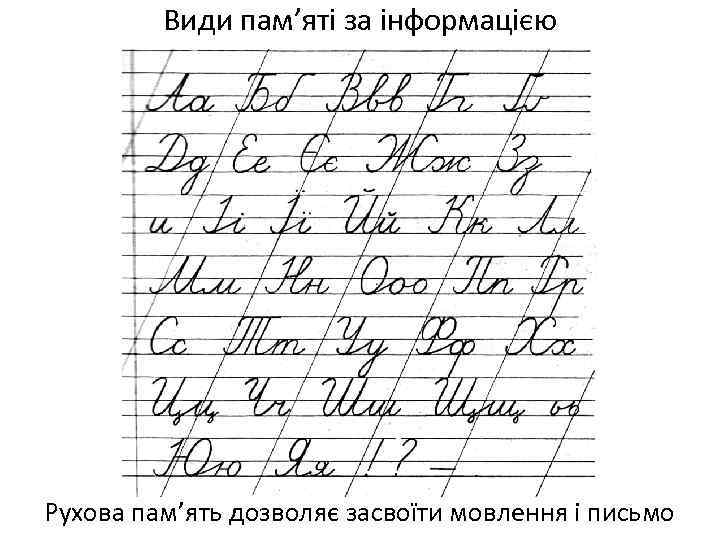 Види пам’яті за інформацією
Аа Бб Ввв Гг Ґґ
Дд Ее Єє Жж Зз
и Іі Її Йй Кк Лл
Мм Нн Ооо Пп Рр
Сс Тт Уу Фф Хх
Цц Чч Шш Щщ ьь
Юю Яя ! ? —
Рухова пам’ять дозволяє засвоїти мовлення і письмо